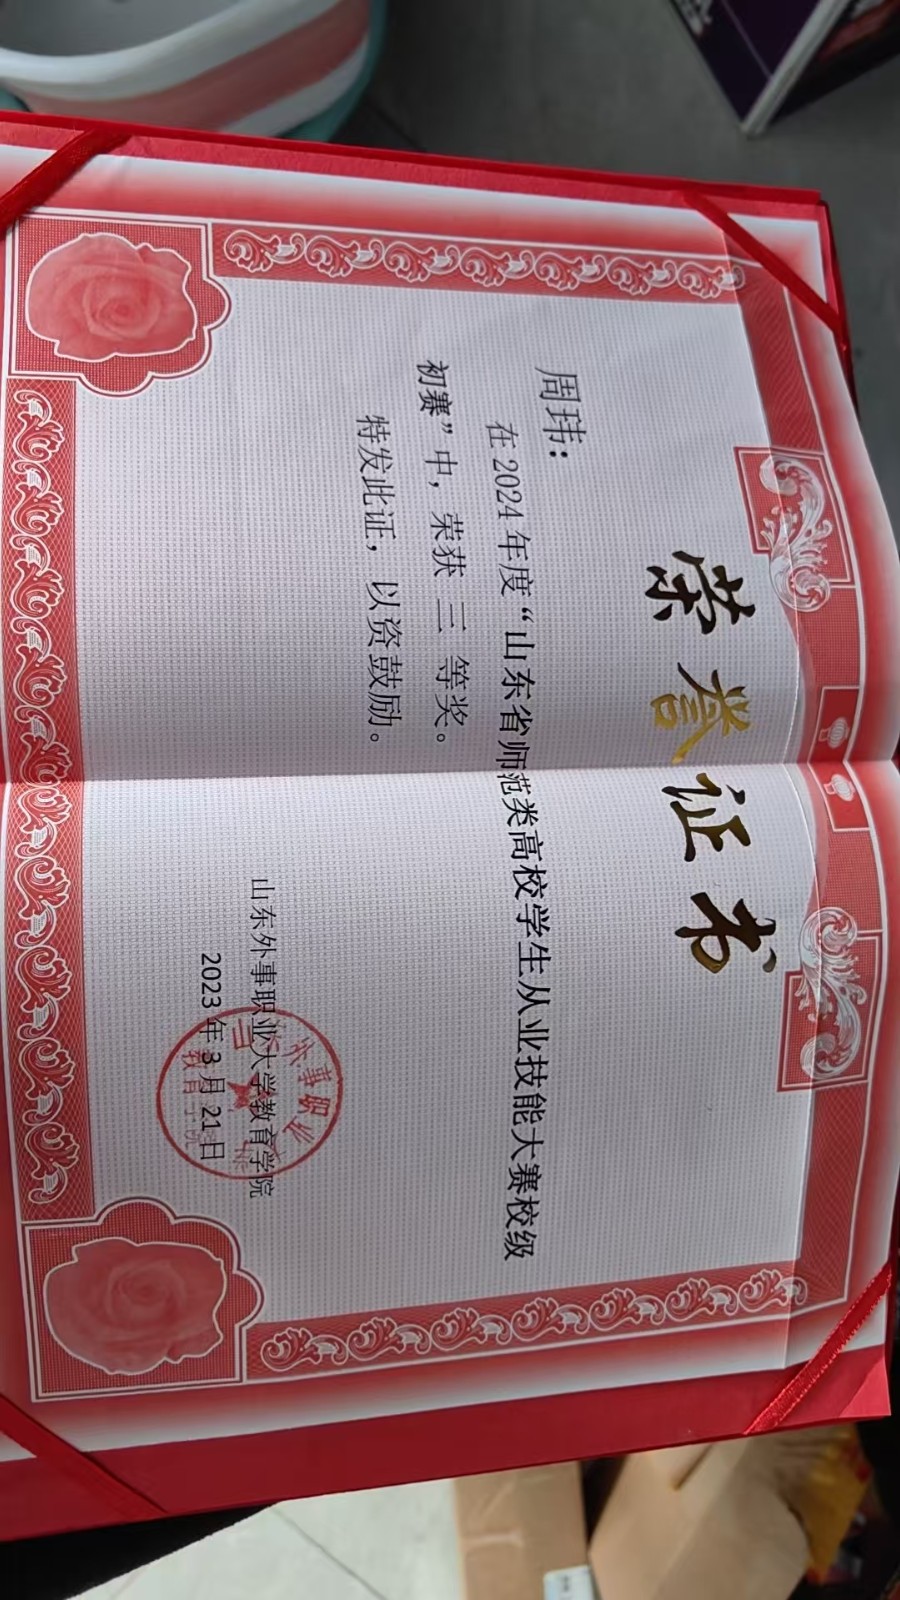 荣誉证书
周玮:
在2024年度“山东省师范类高校学生从业技能大赛校级
初赛”中，荣获 三 等奖。
特发此证，以资鼓励。
山东外事职业大学教育学院
2023年3月21日
外事职业
教育学院